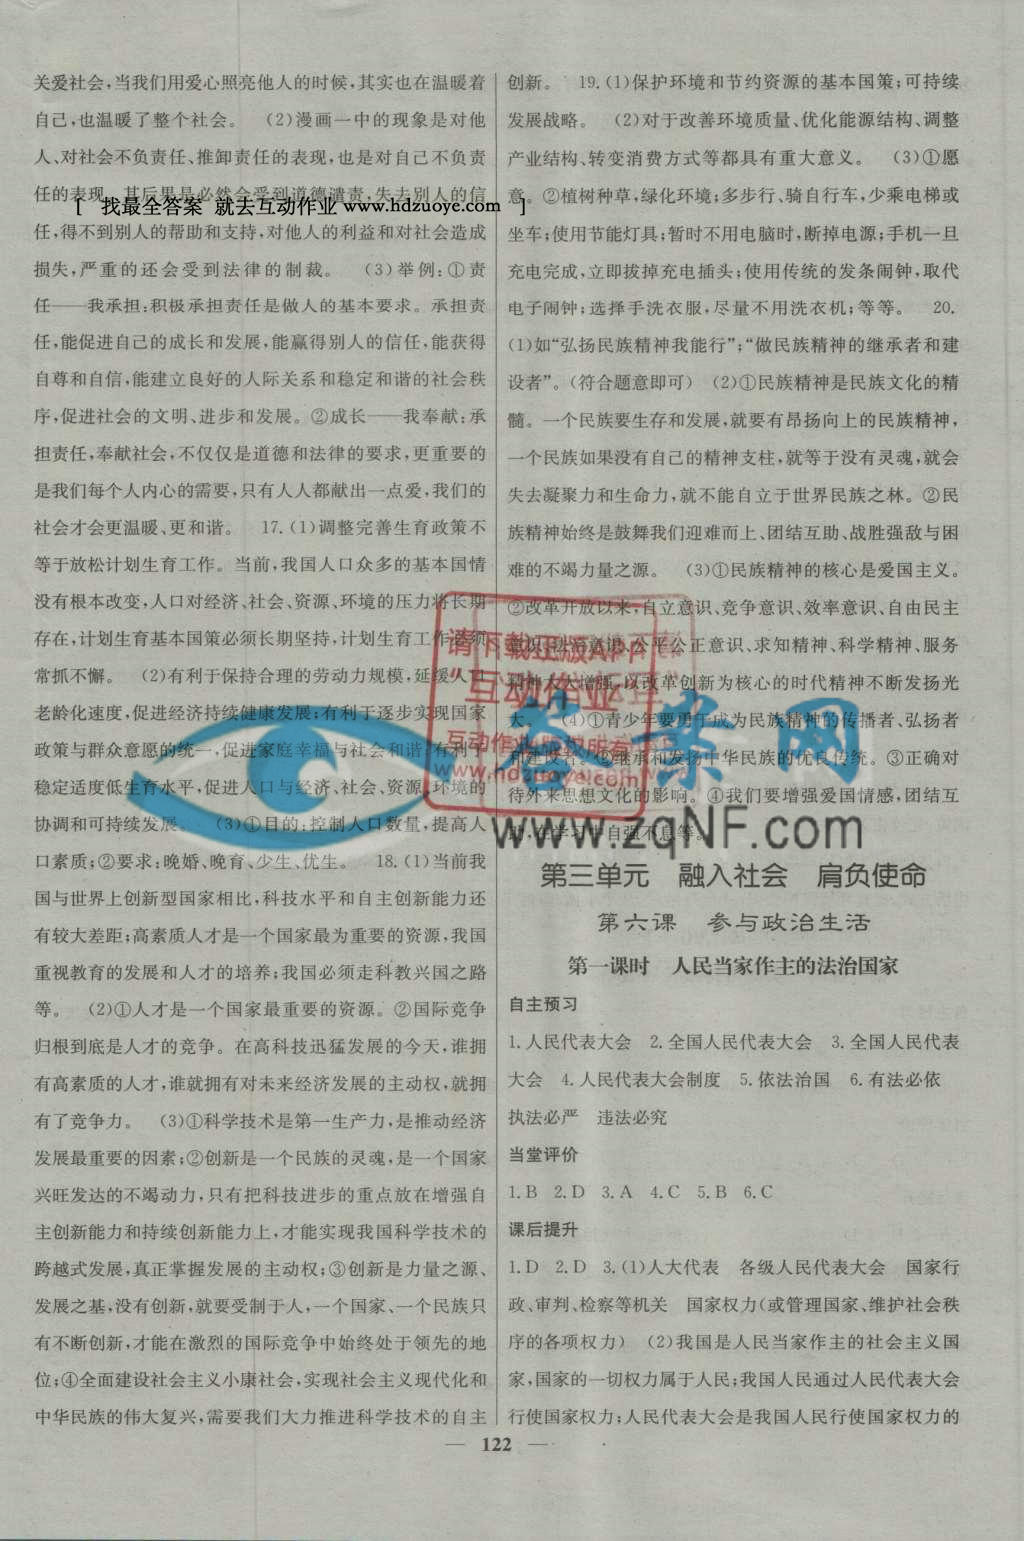 关爱社会,当我们用爱心照亮他人的时候,其实也在温暖着
自己,也温暖了整个社会。 (2)漫画一中的现象是对他
人、对社会不负责任、推卸责任的表现,也是对自己不负责
任的表现,其后果是必然会受到道德谴责,失去别人的信
[ 我最全答案 就去互动作业 www.hdzuoye.com ]
任,得不到别人的帮助和支持,对他人的利益和对社会造成
损失,严重的还会受到法律的制裁。 (3)举例:①责
任——我承担:积极承担责任是做人的基本要求。承担责
任,能促进自己的成长和发展,能赢得别人的信任,能获得
自尊和自信,能建立良好的人际关系和稳定和谐的社会秩
序,促进社会的文明、进步和发展。②成长——我奉献:承
担责任,奉献社会,不仅仅是道德和法律的要求,更重要的
是我们每个人内心的需要,只有人人都献出一点爱,我们的
社会才会更温暖、更和谐。 17.(1)调整完善生育政策不
等于放松计划生育工作。当前,我国人口众多的基本国情
没有根本改变,人口对经济、社会、资源、环境的压力将长期
存在,计划生育基本国策必须长期坚持,计划生育工作必须
常抓不懈。 (2)有利于保持合理的劳动力规模,延缓人口
老龄化速度,促进经济持续健康发展;有利于逐步实现国家
政策与群众意愿的统一,促进家庭幸福与社会和谐;有利于
稳定适度低生育水平,促进人口与经济、社会、资源、环境的
协调和可持续发展。 (3)①目的:控制人口数量,提高人
口素质;②要求:晚婚、晚育、少生、优生。 18.(1)当前我
国与世界上创新型国家相比,科技水平和自主创新能力还
有较大差距;高素质人才是一个国家最为重要的资源,我国
重视教育的发展和人才的培养;我国必须走科教兴国之路
等。 (2)①人才是一个国家最重要的资源。②国际竞争
归根到底是人才的竞争。在高科技迅猛发展的今天,谁拥
有高素质的人才,谁就拥有对未来经济发展的主动权,就拥
有了竞争力。 (3)①科学技术是第一生产力,是推动经济
发展最重要的因素;②创新是一个民族的灵魂,是一个国家
兴旺发达的不竭动力,只有把科技进步的重点放在增强自
主创新能力和持续创新能力上,才能实现我国科学技术的
跨越式发展,真正掌握发展的主动权;③创新是力量之源、
发展之基,没有创新,就要受制于人,一个国家、一个民族只
有不断创新,才能在激烈的国际竞争中始终处于领先的地
位;④全面建设社会主义小康社会,实现社会主义现代化和
中华民族的伟大复兴,需要我们大力推进科学技术的自主
创新。 19.(1)保护环境和节约资源的基本国策;可持续
发展战略。 (2)对于改善环境质量、优化能源结构、调整
产业结构、转变消费方式等都具有重大意义。 (3)①愿
意。②植树种草,绿化环境;多步行、骑自行车,少乘电梯或
坐车;使用节能灯具;暂时不用电脑时,断掉电源;手机一旦
充电完成,立即拔掉充电插头;使用传统的发条闹钟,取代
电子闹钟;选择手洗衣服,尽量不用洗衣机;等等。 20.
(1)如“弘扬民族精神我能行”;“做民族精神的继承者和建
设者”。(符合题意即可) (2)①民族精神是民族文化的精
髓。一个民族要生存和发展,就要有昂扬向上的民族精神,
一个民族如果没有自己的精神支柱,就等于没有灵魂,就会
失去凝聚力和生命力,就不能自立于世界民族之林。②民
族精神始终是鼓舞我们迎难而上、团结互助、战胜强敌与困
难的不竭力量之源。 (3)①民族精神的核心是爱国主义。
②改革开放以来,自立意识、竞争意识、效率意识、自由民主
意识、法治意识、公平公正意识、求知精神、科学精神、服务
精神大大增强,以改革创新为核心的时代精神不断发扬光
大。 (4)①青少年要勇于成为民族精神的传播者、弘扬者
和建设者。②继承和发扬中华民族的优良传统。③正确对
待外来思想文化的影响。④我们要增强爱国情感,团结互
助,在学习中自强不息等。
请下载正版APP
“互动作业”
www.hdzuoye.com
答案网
www.zqNF.com
第三单元 融入社会 肩负使命
第六课 参与政治生活
第一课时 人民当家作主的法治国家
自主预习
1.人民代表大会 2.全国人民代表大会 3.全国人民代表
大会 4.人民代表大会制度 5.依法治国 6.有法必依
执法必严 违法必究
当堂评价
1.B 2.D 3.A 4.C 5.B 6.C
课后提升
1.D 2.D 3.(1)人大代表 各级人民代表大会 国家行
政、审判、检察等机关 国家权力(或管理国家、维护社会秩
序的各项权力) (2)我国是人民当家作主的社会主义国
家,国家的一切权力属于人民;我国人民通过人民代表大会
行使国家权力;人民代表大会是我国人民行使国家权力的
— 122 —